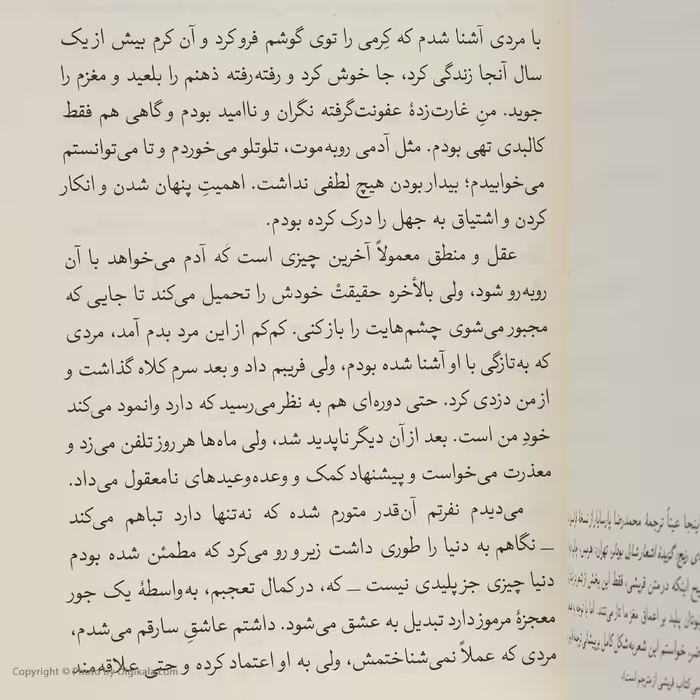 با مردی آشنا شدم که کِرمی را توی گوشم فرو کرد و آن کرم بیش از یک
سال آنجا زندگی کرد، جا خوش کرد و رفته‌رفته ذهنم را بلعید و مغزم را
جوید. منِ غارت‌زدهٔ عفونت‌گرفته نگران و ناامید بودم و گاهی هم فقط
کالبدی تهی بودم. مثل آدمی روبه‌موت، تلوتلو می‌خوردم و تا می‌توانستم
می‌خوابیدم؛ بیدار بودن هیچ لطفی نداشت. اهمیتِ پنهان شدن و انکار
کردن و اشتیاق به جهل را درک کرده بودم.
عقل و منطق معمولاً آخرین چیزی است که آدم می‌خواهد با آن
روبه‌رو شود، ولی بالأخره حقیقتْ خودش را تحمیل می‌کند تا جایی که
مجبور می‌شوی چشم‌هایت را باز کنی. کم‌کم از این مرد بدم آمد، مردی
که به‌تازگی با او آشنا شده بودم، ولی فریبم داد و بعد سرم کلاه گذاشت و
از من دزدی کرد. حتی دوره‌ای هم به نظر می‌رسید که دارد وانمود می‌کند
خودِ من است. بعد از آن دیگر ناپدید شد، ولی ماه‌ها هر روز تلفن می‌زد و
معذرت می‌خواست و پیشنهاد کمک و وعده‌وعیدهای نامعقول می‌داد.
می‌دیدم نفرتم آن‌قدر متورم شده که نه‌تنها دارد تباهم می‌کند
ــ نگاهم به دنیا را طوری داشت زیر و رو می‌کرد که مطمئن شده بودم
دنیا چیزی جز پلیدی نیست ــ که، در کمال تعجبم، به‌واسطهٔ یک جور
معجزهٔ مرموز دارد تبدیل به عشق می‌شود. داشتم عاشقِ سارقم می‌شدم،
مردی که عملاً نمی‌شناختمش، ولی به او اعتماد کرده و حتی علاقه‌مند
Copyright © Photo by Digikala.com
اینجا عیناً ترجمهٔ محمدرضا پارسایار از نسخهٔ
گزیدهٔ اشعار شارل بودلر، تهران: هرمس،
اینکه در متن قریشی، فقط این بخش از شعر
پلید بر اعماق مغز ما تار می‌تنند. اما با توجه
خواستم این شعر به‌شکل کامل
کتاب قریشی از مترجم است).